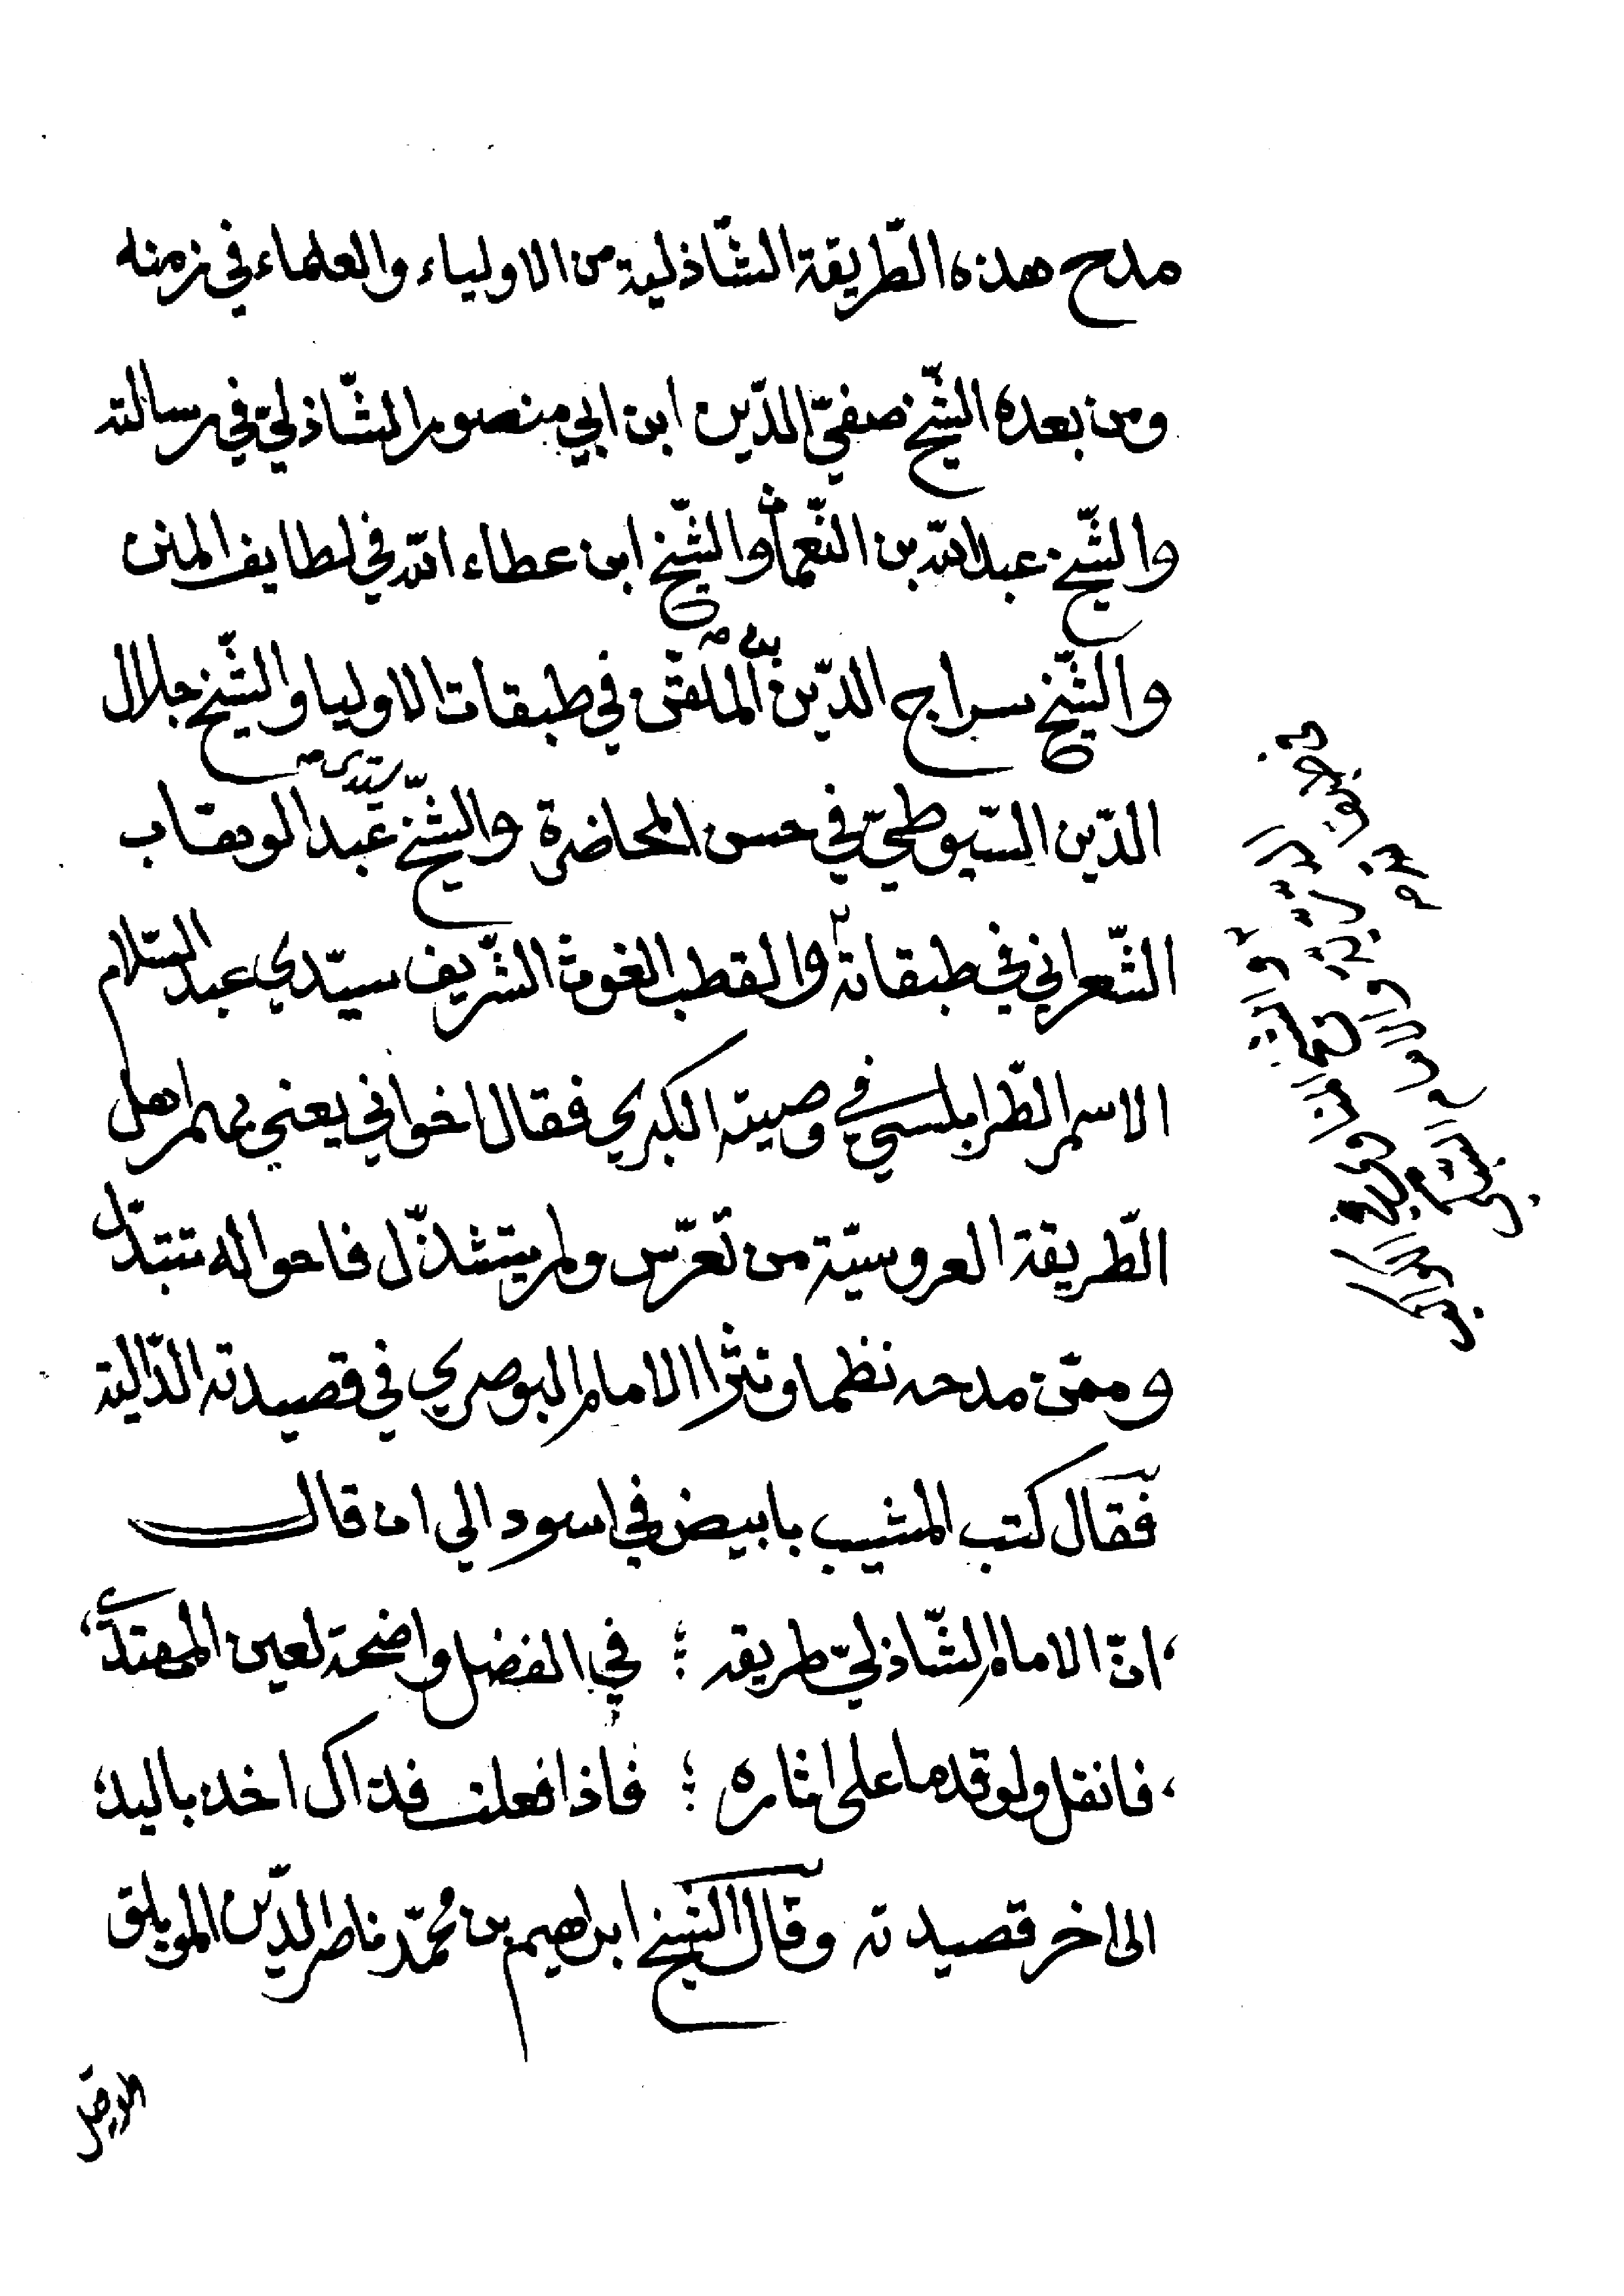 مدح هذه الطّريقة الشّاذلية من الاولياء والعلماء في زمنه
ومن بعده الشّيخ صفيّ الدّين ابن ابي منصور الشّاذليّ في رسالته
والشّيخ عبد الله بن النّعمان والشّيخ ابن عطاء الله في لطايف المنن
والشّيخ سراج الدّين بن الملقّن في طبقات الاوليا والشّيخ جلال
الدّين السّيوطيّ في حسن المحاضرة والشّيخ سيدى عبد الوهاب
الشّعراني في طبقاته والقطب الغوث الشّريف سيّدي عبد السّلام
الاسمر الطّرابلسي في وصيته الكبرى فقال اخواني يعني بهم اهل
الطّريقة العروسيّة من تعرّس ولم يتشذّل فاحواله تتبدّل
وممّن مدحه نظما ونثرا الامام البوصري في قصيدته الدّالية
فقال كتب المشيب بابيض في اسود الى ان قال
، انّ الامام الشّاذليّ طريقه ؛ في الفضل واضحة لعين المهتدى ،
، فانقل ولو قدما على اثاره ؛ فاذا فعلت فذاك اخذ باليد ،
الى اخر قصيدته وقال الشيخ ابراهيم بن محمّد ناصر الدّين المويلق